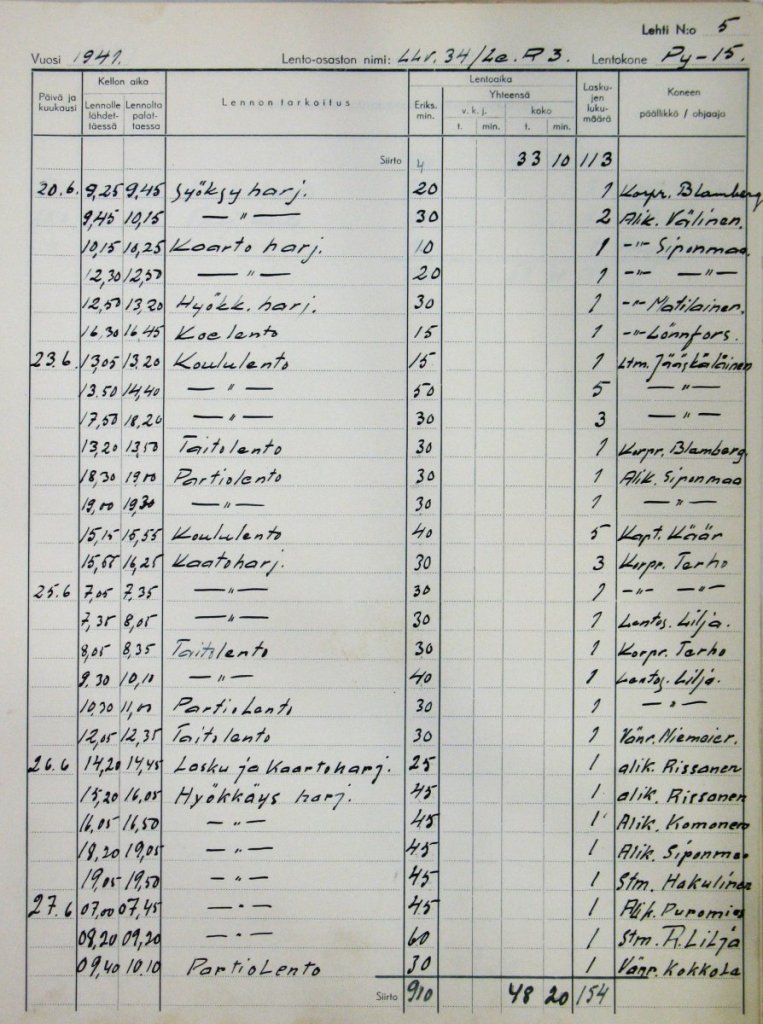 Lehti N:o 5
Vuosi 1941. Lento-osaston nimi: LLv. 34/Le. R 3. Lentokone Py-15.
Päivä ja kuukausi Kellon aika Lennolle lähdettäessä Lennolta palattaessa Lennon tarkoitus Lentoaika Eriks. min. Yhteensä v. k. j. t. min. koko t. min. Laskujen lukumäärä Koneen päällikkö / ohjaaja
Siirto 4 33 10 113
20.6. 9,25 9,45 Syöksy harj. 20 1 Korpr. Blomberg
9,45 10,15 — " — 30 2 Alik. Välinen.
10,15 10,25 Kaarto harj. 10 1 -"- Siponmaa.
12,30 12,50 — " — 20 1 -"- — " —
12,50 13,20 Hyökk. harj. 30 1 -"- Matilainen.
16,30 16,45 Koelento 15 1 -"- Lönnfors.
23.6. 13,05 13.20 Koululento 15 1 Ltm. Jääskäläinen
13.50 14,40 — " — 50 5 — " —
17,50 18,20 — " — 30 3 — " —
13,20 13,50 Taitolento 30 1 Korpr. Blomberg.
18,30 19,00 Partiolento 30 1 Alik. Siponmaa
19,00 19,30 — " — 30 1 — " —
15,15 15,55 Koululento 40 5 Kapt. Käär
15,55 16,25 Kaatoharj. 30 3 Korpr. Terho
25.6 7,05 7,35 — " — 30 1 -"- — " —
7,35 8,05 — " — 30 1 Lentos. Lilja.
8,05 8,35 Taitolento 30 1 Korpr. Terho
9.30 10,10 — " — 40 1 Lentos. Lilja.
10,30 11,00 Partiolento 30 1 — " —
12,05 12,35 Taitolento 30 1 Vänr. Niemeier.
26.6 14,20 14,45 Lasku ja Kaartoharj. 25 1 alik. Rissanen
15,20 16,05 Hyökkäys harj. 45 1 alik. Rissanen
16,05 16,50 — " — 45 1 Alik. Komonero
18,20 19,05 — " — 45 1 Alik. Siponmaa
19,05 19,50 — " — 45 1 Stm. Hakulinen
27.6 07,00 07,45 — " — 45 1 Alik. Puromies
08,20 09,20 — " — 60 1 Stm. A. Lilja
09,40 10.10 Partiolento 30 1 Vänr. Kokkola
Siirto 910 48 20 154